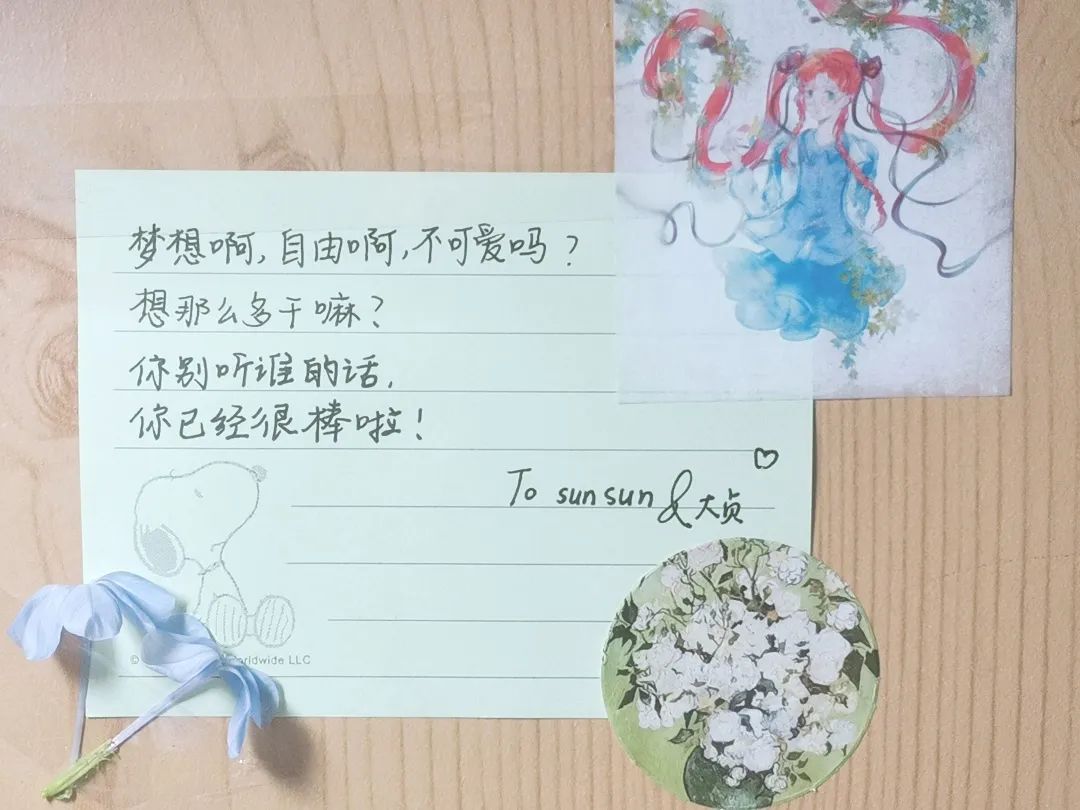 梦想啊,自由啊,不可爱吗?
想那么多干嘛?
你别听谁的话,
你已经很棒啦!
To sunsun & 大贞
© orldwide LLC